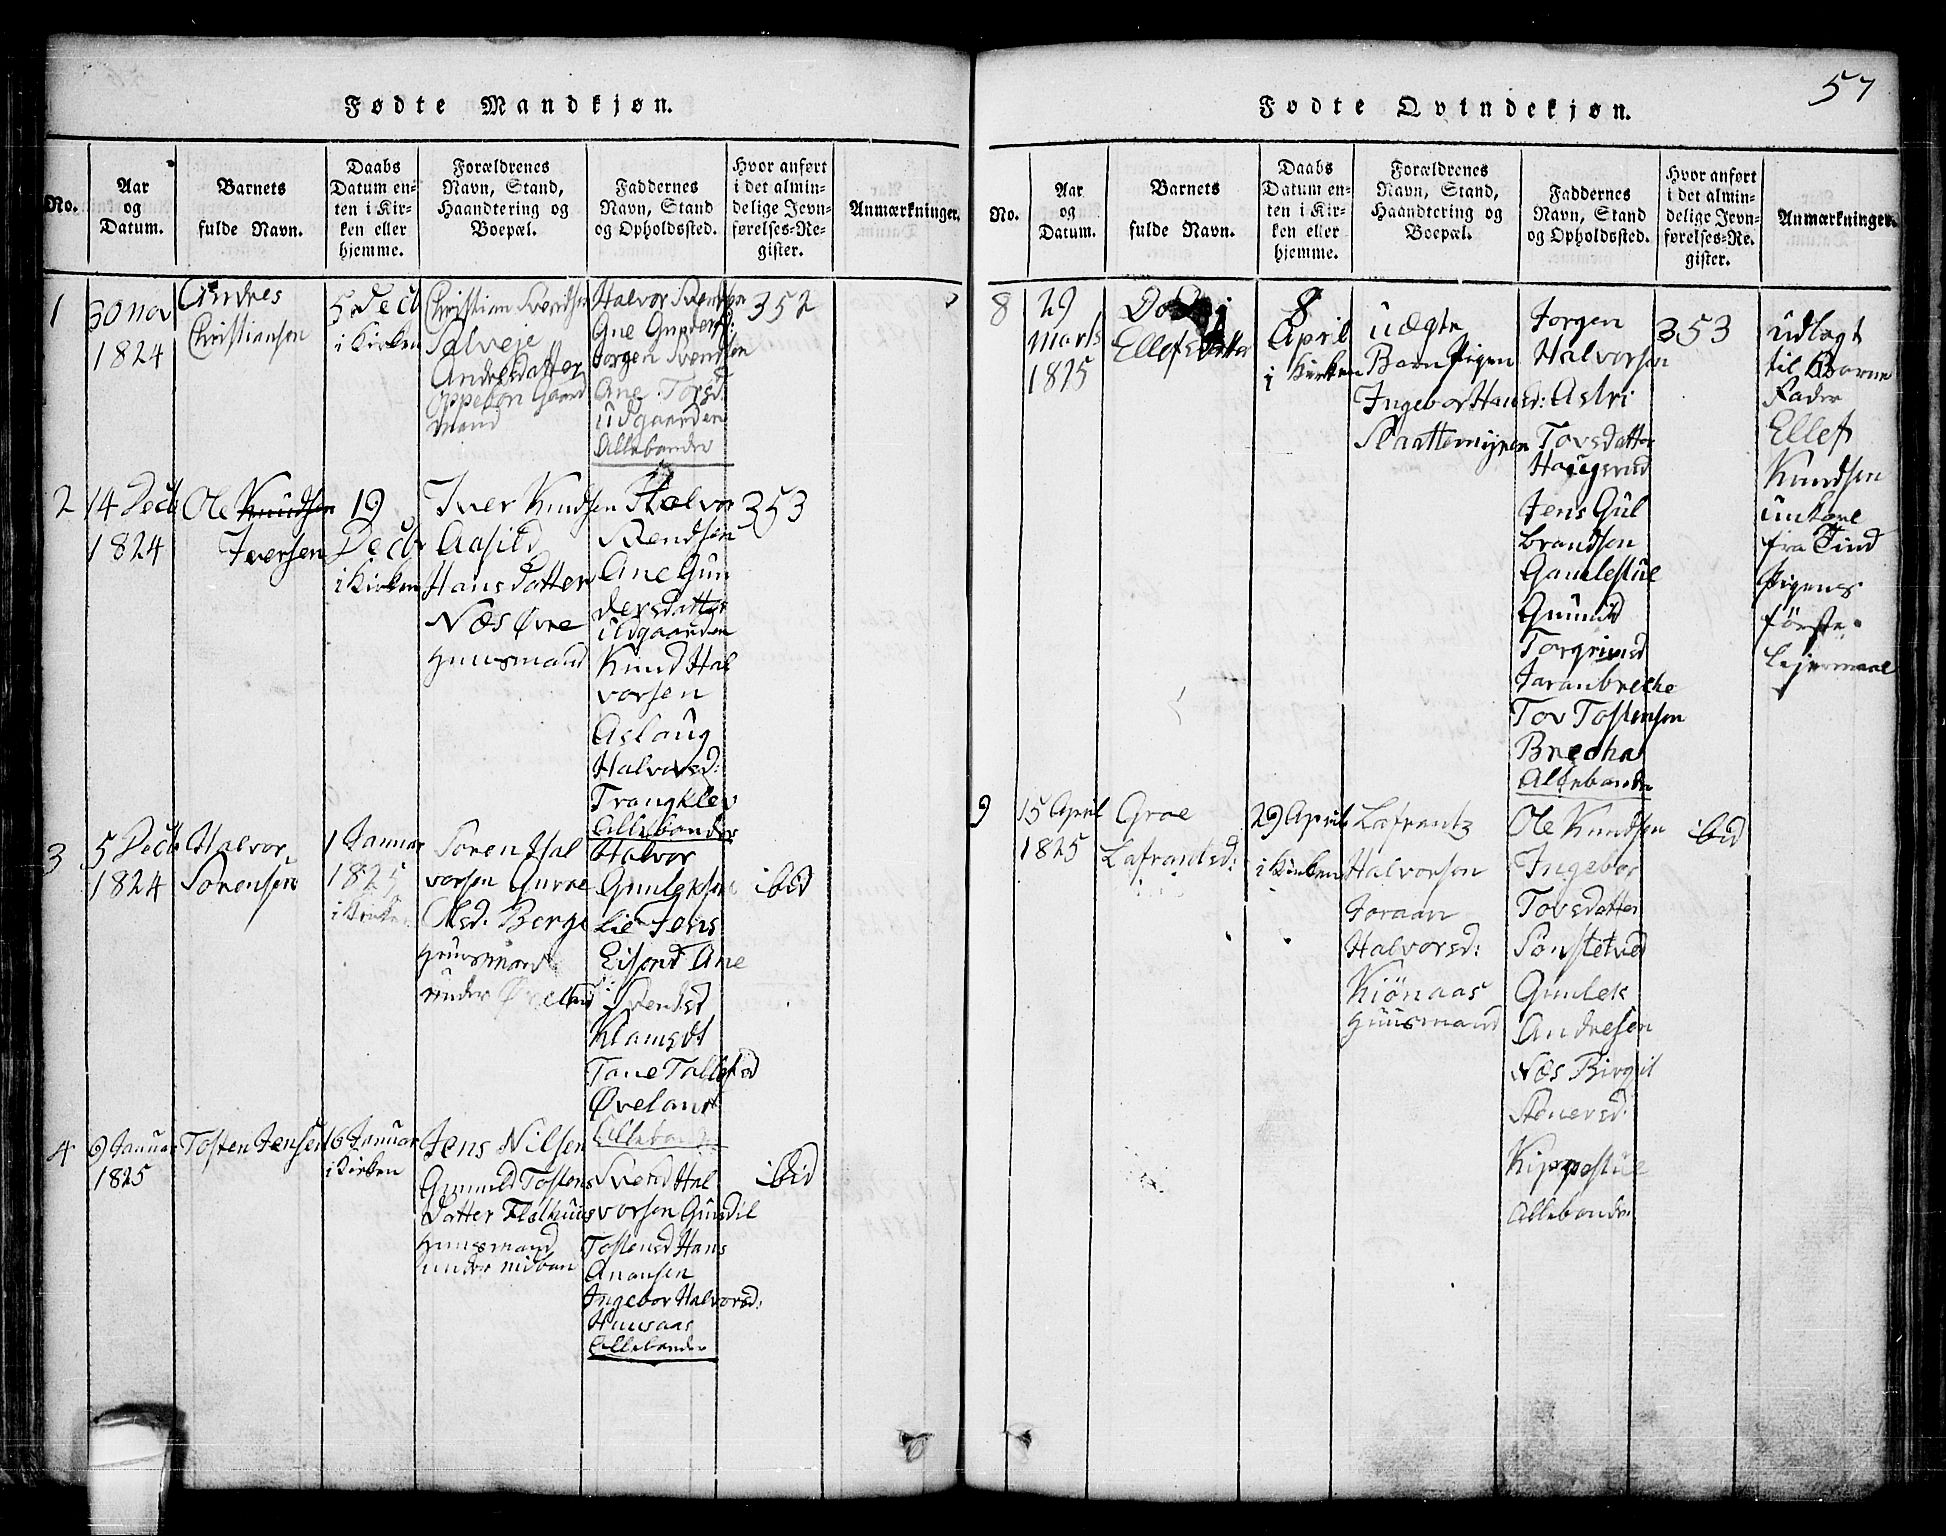 Fødte Mandkjøn.
No.
Aar
og
Datum.
Barnets
fulde Navn.
Daabs
Datum en-
ten i Kir-
ken eller
hjemme.
Forældrenes
Navn, Stand,
Haandtering og
Boepæl.
Faddernes
Navn, Stand
og Opholdssted.
Hvor anført
i det almin-
delige Jevn-
førelses-Re-
gister.
Anmærkninger.
1
30 nov
1824
Andres
Christiansen
5 Decb
i Kirken
Christian Svendsen
Salveje
Andresdatter
Oppebøn Gaard
mand
Halvor Svendsen
Ane Gundersd:
Jørgen Svendsen
Ane Torsd:
udgaarden
Allebønder
352
2
14 Decb
1824
Ole Knudsen
Iversen
19
Decb
i Kirken
Iver Knudsen
Aasild
Hansdatter
Næs Øvre
Huusmand
Halvor
Svendsen
Ane Gun
dersdatter
udgaarden
Knud Hal
vorsen
Aslaug
Halvorsd:
Trangklev
Allebønder
353
3
5 Decb
1824
Halvor
Sørensen
1 Januar
1825
i Kirken
Søren Hal
vorsen Gurve
Olsd: Berge
Huusmand
under Øveland
Halvor
Gunleksen
Lie Jens
Ane
Svendsd
Tone Tallefsd
Øveland
Allebønder
ibid
4
9 Januar
1825
Tosten Jensen
16 Januar
i Kirken
Jens Nilsen
Gunuld Tostens
Datter Flathuus
Huusmand
under
Svend Hal
vorsen Gundil
Tostensd Hans
Anansen
Ingebor Halvorsd:
Huusaas
Allebønder
ibid
57
Fødte Qvindekjøn.
No.
Aar
og
Datum.
Barnets
fulde Navn.
Daabs
Datum en-
ten i Kir-
ken eller
hjemme.
Forældrenes
Navn, Stand,
Haandtering og
Boepæl.
Faddernes
Navn, Stand
og Opholdssted.
Hvor anført
i det almin-
delige Jevn-
førelses-Re-
gister.
Anmærkninger.
8
29
Marts
1825
Ellefsdatter
8
April
i Kirken
uægte
Barn Pigen
Ingebor Hansd:
Slaattemyren
Jørgen
Halvorsen
Astri
Tovsdatter
Haugerud
Jens Gul
brandsen
Gamlestul
Gunuld
Torgrimsd
Jaranbrekke
Tov Tostensen
Brecka
Allebønder
353
udlagt
til Barne
Fader
Ellef
Knudsen
unkarl
fra Tind
Pigens
første
Lejermaal
9
15 April
1825
Groe
Lafrantsd:
29 April
i Kirken
Lafrantz
Halvorsen
Joraan
Halvorsd:
Kiönaas
Huusmand
Ole Knudsen
Ingebor
Tovsdatter
Sönstetved
Gunlek
Andresen
Næs Birgit
Stenersd:
Kippestul
Allebønder
ibid